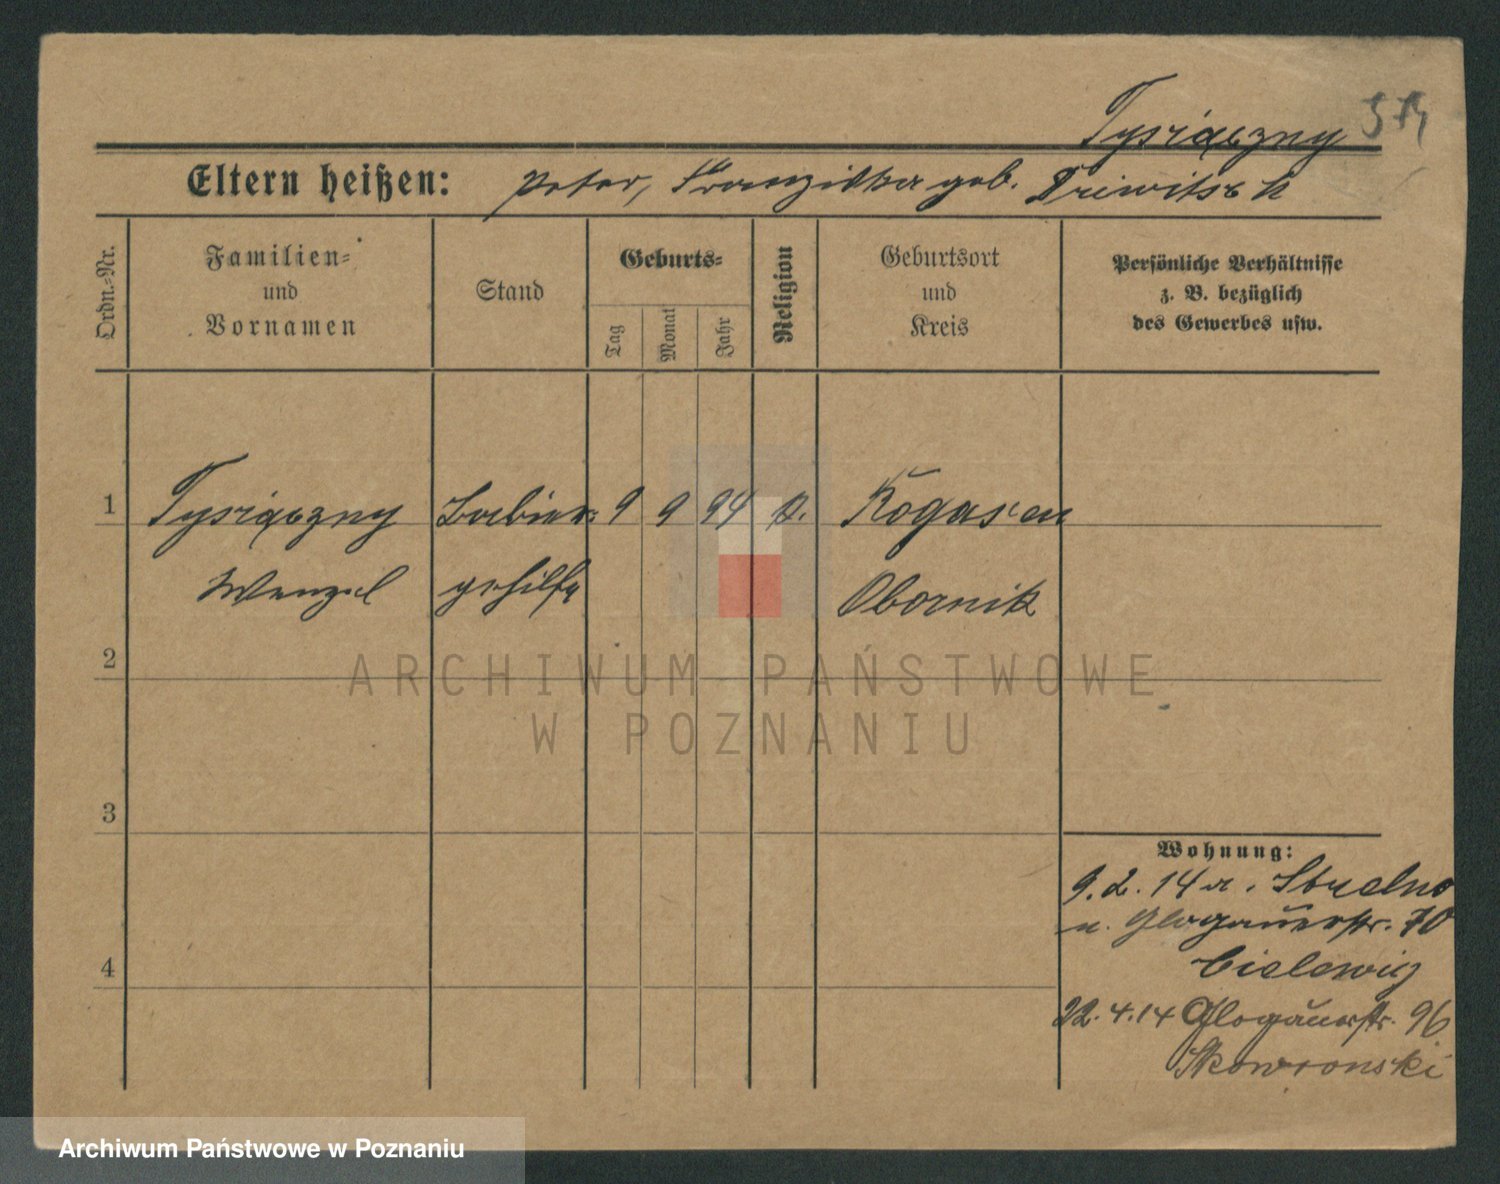 Tysiączny
Eltern heißen: Peter, Franziska geb. Driwitsch
Ordn.-Nr.
Familien-
und
Vornamen
Stand
Geburts-
Tag
Monat
Jahr
Religion
Geburtsort
und
Kreis
Persönliche Verhältnisse
z. B. bezüglich
des Gewerbes usw.
1 Tysiączny Barbier- 9 9 94 k. Rogasen
Wenzel gehilfe Obornik
2
3
4
Wohnung:
9.2.14 a. Strelno
n. Glogauerstr. 70
Cielewicz
22.4.14 Glogauerstr. 96
Skowronski
ARCHIWUM PAŃSTWOWE
W POZNANIU
Archiwum Państwowe w Poznaniu